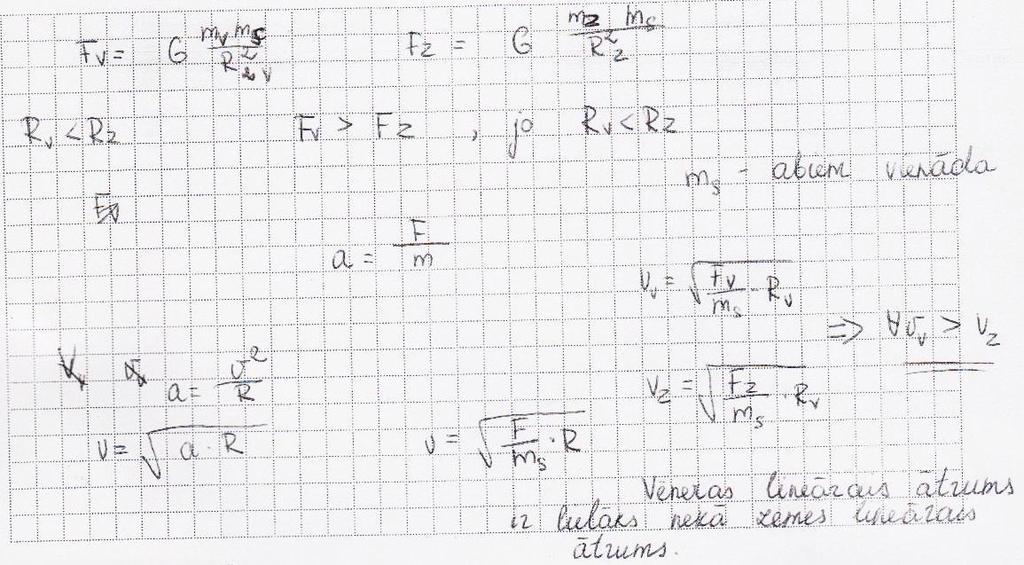 Fv = G mv ms / R²v Fz = G mz ms / R²z
Rv < Rz Fv > Fz , jo Rv < Rz
ms - abiem vienāda
a = F / m
vv = √(Fv / ms · Rv)
⇒ vv > vz
a = v² / R
vz = √(Fz / ms · Rv)
v = √(a · R) v = √(F / ms · R)
Veneras lineārais ātrums
ir lielāks nekā zemes lineārais
ātrums.